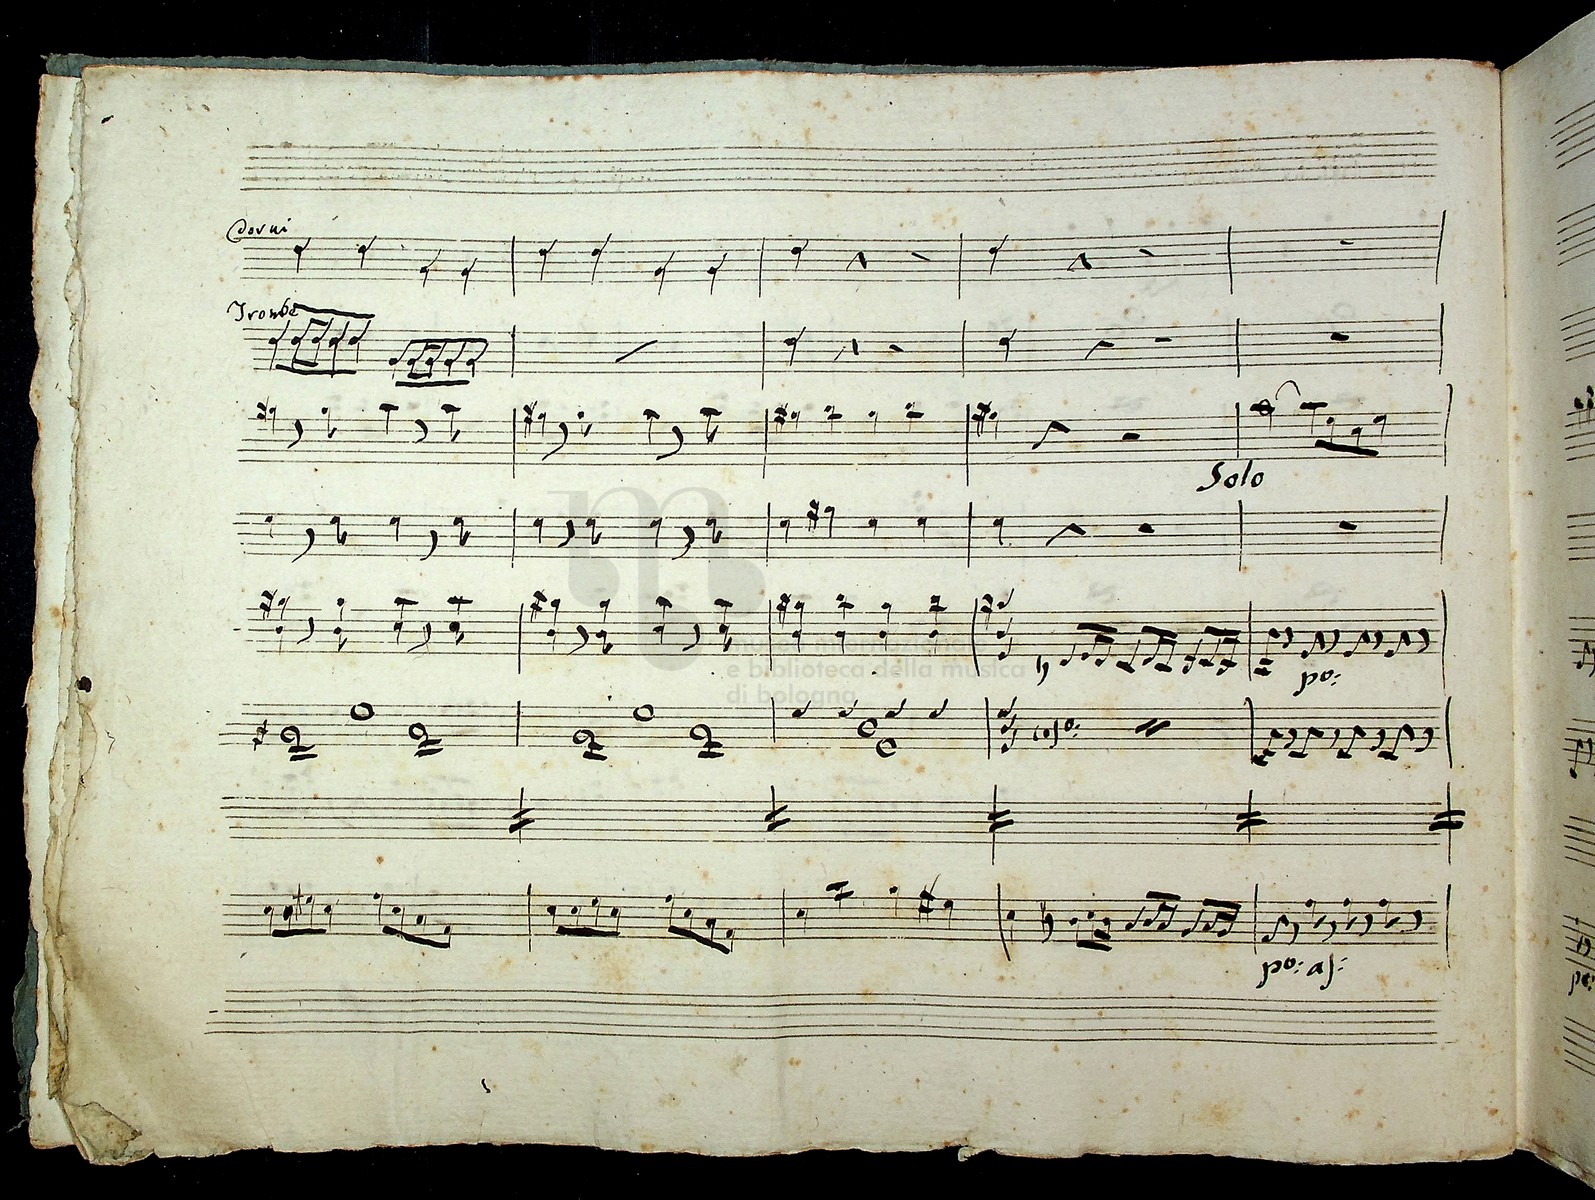 Corni
Trombe
Solo
po:
museo internazionale
e biblioteca della musica
di bologna
po: as: